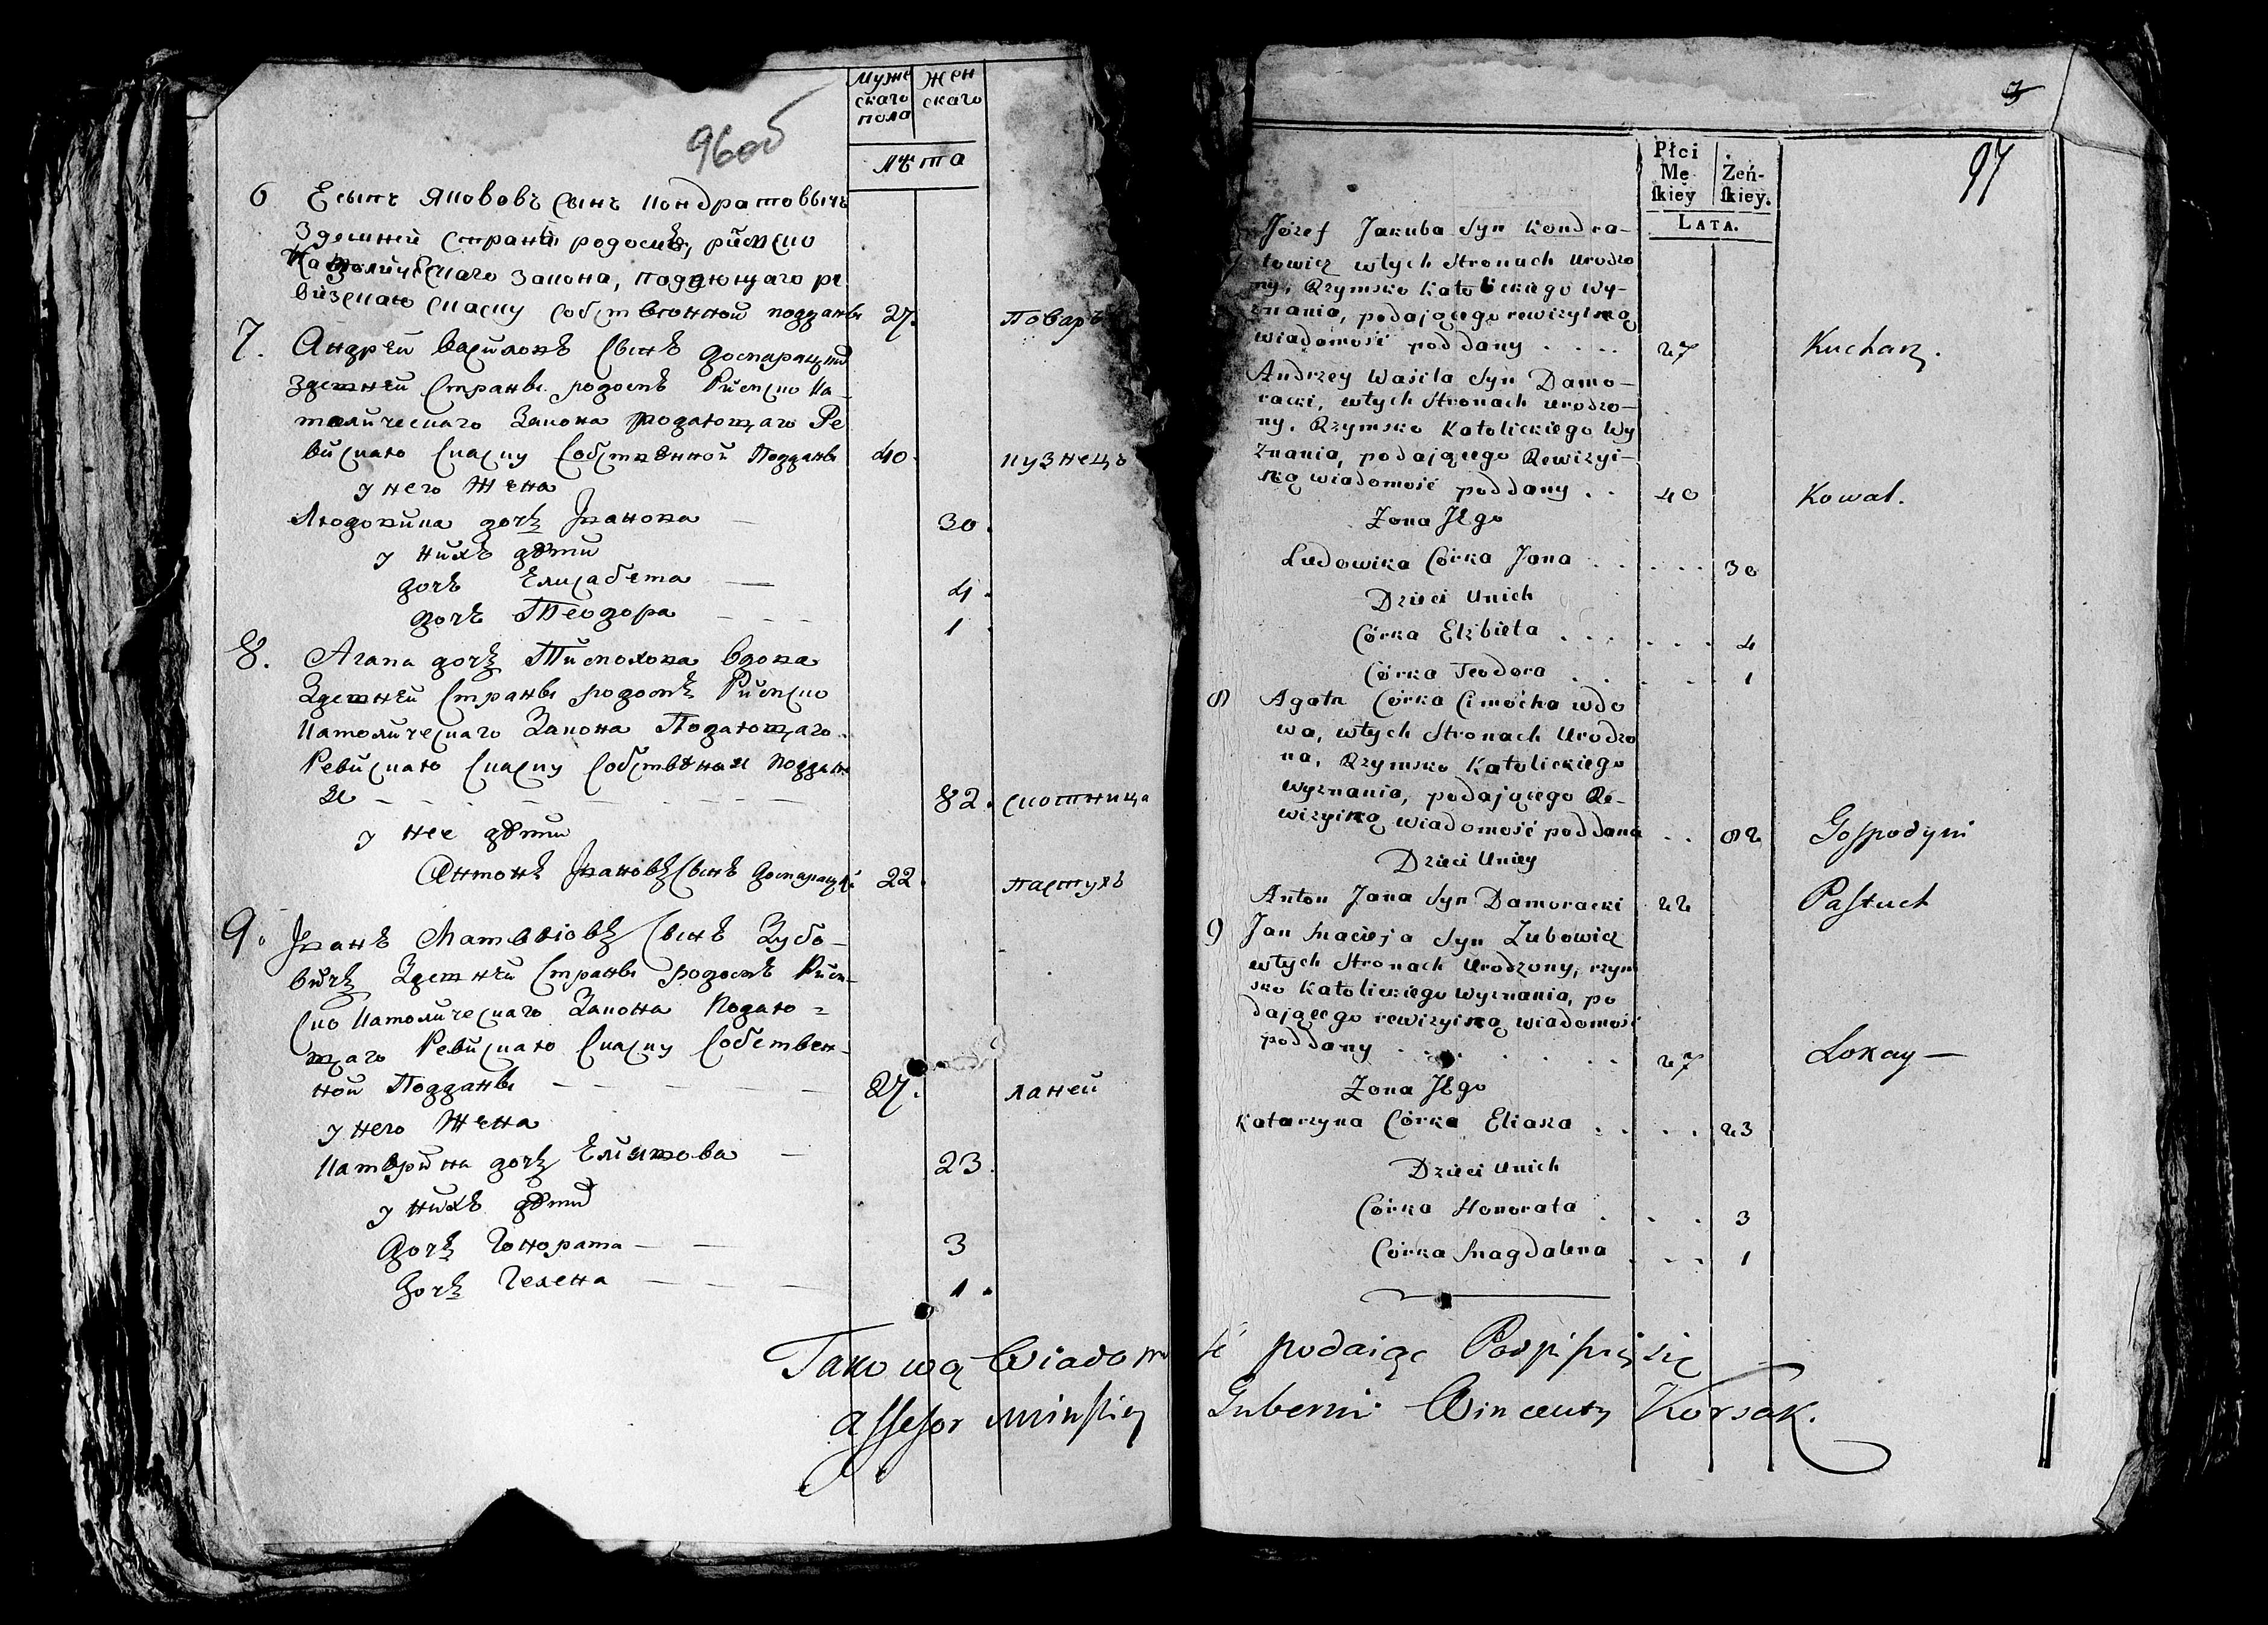 Муже
скаго
пола
Жен
скаго
96об
лѣта
6 Есыпъ Якововъ сынъ Кондратовычъ
Здешней страны родомъ, римско
Католическаго закона, подающаго ре
визскаю скаску собственной подданы 27. Поваръ
7. Андрей Василовъ сынъ Домарацкий
здешней страны родомъ Римско Ка-
толическаго Закона подающаго Ре
вискаю скаску собственной Подданы 40. кузнецъ
у него Жена
Людовика дочъ Иванова — 30.
у нихъ дѣти
дочъ Елисабета — 4.
дочъ Теодора - - - 1.
8. Агапа дочъ Тимохова вдова
Здешней страны родомъ Римско
Католическаго Закона Подающаго
Ревискаю скаску собственная поддан
82. скотница
у нее дѣти
Антонъ Ивановъ сынъ Домарацкий 22. пастухъ
9. Иванъ Матвѣювъ сынъ Зубо-
вичъ Здешней страны родомъ Рим-
ско Католическаго Закона Подаю=
щаго Ревискаю скаску собствен-
ной Подданы — — — 27. лакей
у него Жена
Катерина дочъ Елиашова — 23.
у нихъ дѣти
Дочъ Гонората — — 3
Дочъ Гелена — — — 1.
3
97
Płci
Mę
ſkiey
Żeń-
ſkiey.
LATA.
Józef Jakuba Syn Kondra-
towicz wtych Stronach Urodzo
ny, Rzymsko Katolickiego Wy-
znania, podającego rewizyiską
wiadomość poddany . . . . 27 Kucharz.
Andrzey Wasila Syn Damo-
racki, wtych Stronach urodzo-
ny, Rzymsko Katolickiego Wy
znania, podającego Rewizyi-
ską wiadomość poddany . . 40 Kowal.
Zona JEgo
Ludowika Córka Jana . . . . . 30
Dzieci Unich
Córka Elżbieta . . . . . . 4
Córka Teodora . . . . . 1
8 Agata Córka Cimocha wdo
wa, wtych Stronach Urodzo
na, Rzymsko Katolickiego
wyznania, podającego Re-
wizyiską wiadomość poddana . . 82 Goſpodyni
Dzieci Uniey
Anton Jana Syn Damoracki 22 Paſtuch
9 Jan Macieja Syn Zubowicz
wtych Stronach Urodzony, rzym
sko Katolickiego Wyznania, po
dającego rewizyiską wiadomość
poddany . . . . . . 27 Lokay —
Zona JEgo
Katarzyna Córka Eliasza . . . . 23
Dzieci Unich
Córka Honorata . . . 3
Córka Magdalena . . . 1
Takową Wiadomość podaiąc Podpiſuię się
Aſſeſor Minſkiey Gubernii Wincenty Korsak.